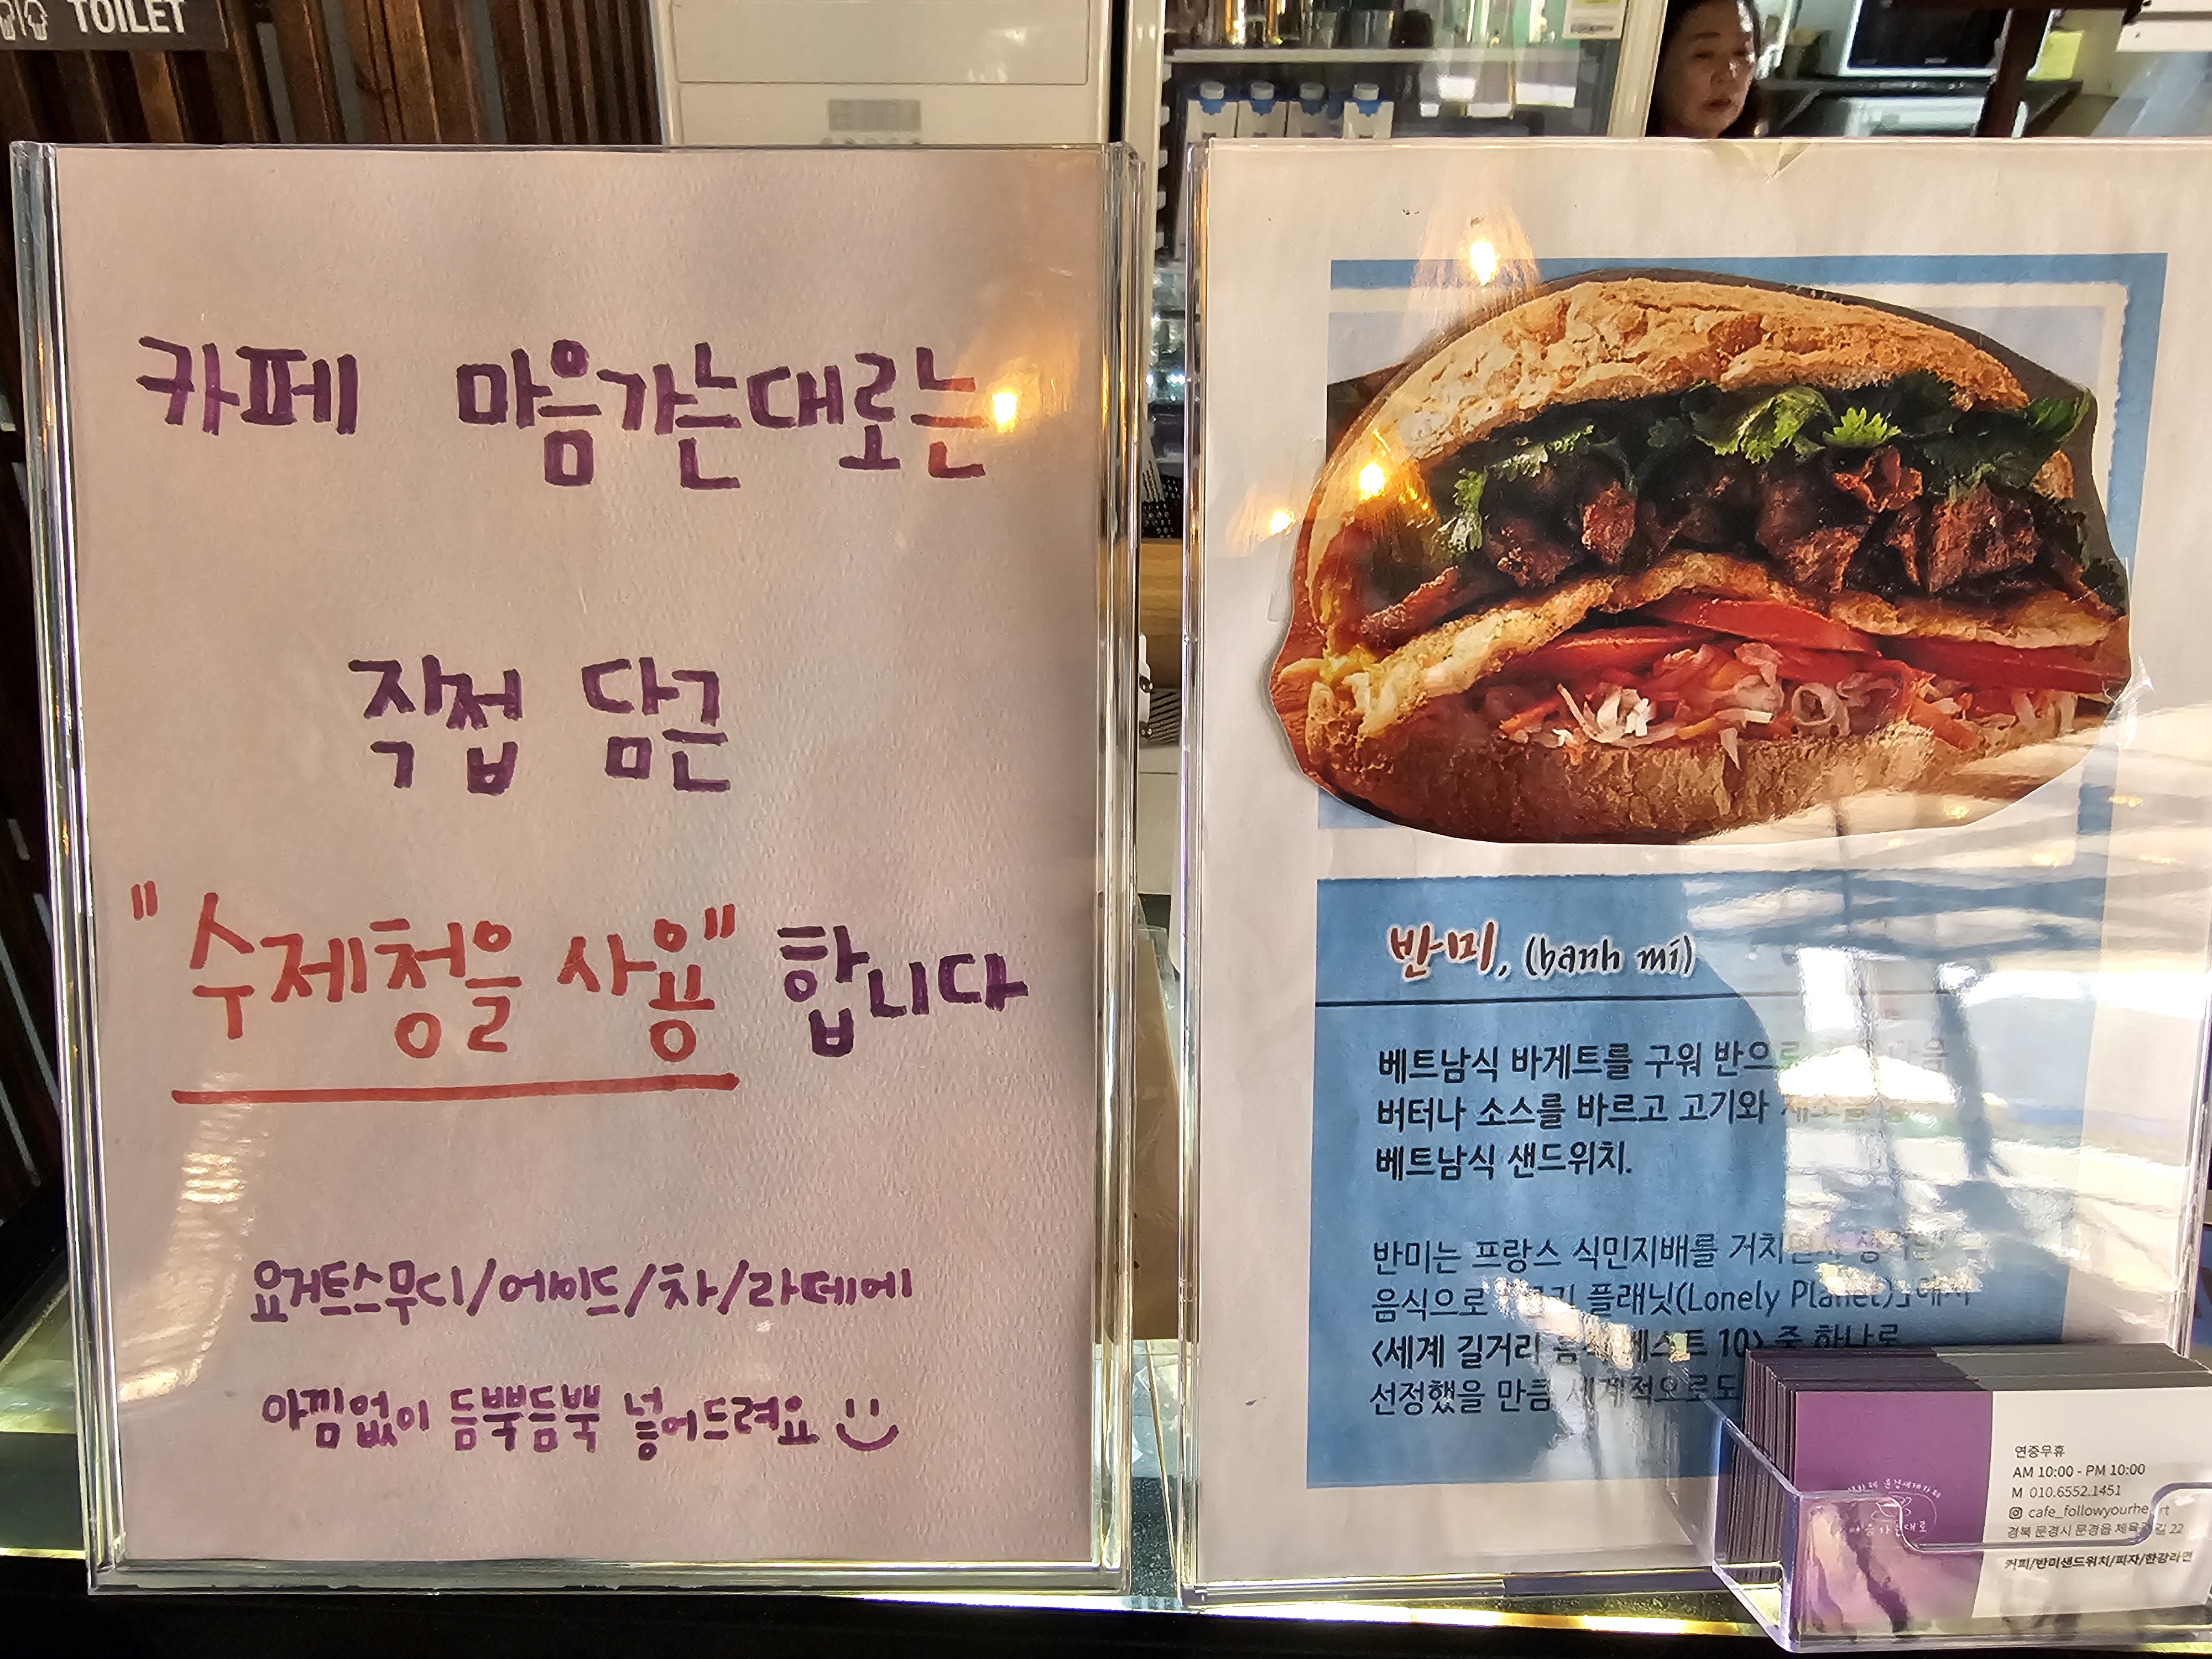 TOILET
카페 마음가는대로는
직접 담근
"수제청을 사용" 합니다
요거트스무디/에이드/차/라떼에
아낌없이 듬뿍듬뿍 넣어드려요
반미, (banh mi)
베트남식 바게트를 구워 반으로
버터나 소스를 바르고 고기와 채소를
베트남식 샌드위치.
반미는 프랑스 식민지배를 거치면서
음식으로 플래닛(Lonely Planet)」에서
〈세계 길거리 음식 베스트 10〉 중 하나로
선정했을 만큼 세계적으로도
연중무휴
AM 10:00 - PM 10:00
M 010.6552.1451
cafe_followyourheart
경북 문경시 문경읍 길 22
커피/반미샌드위치/피자/한강라면
마음가는대로